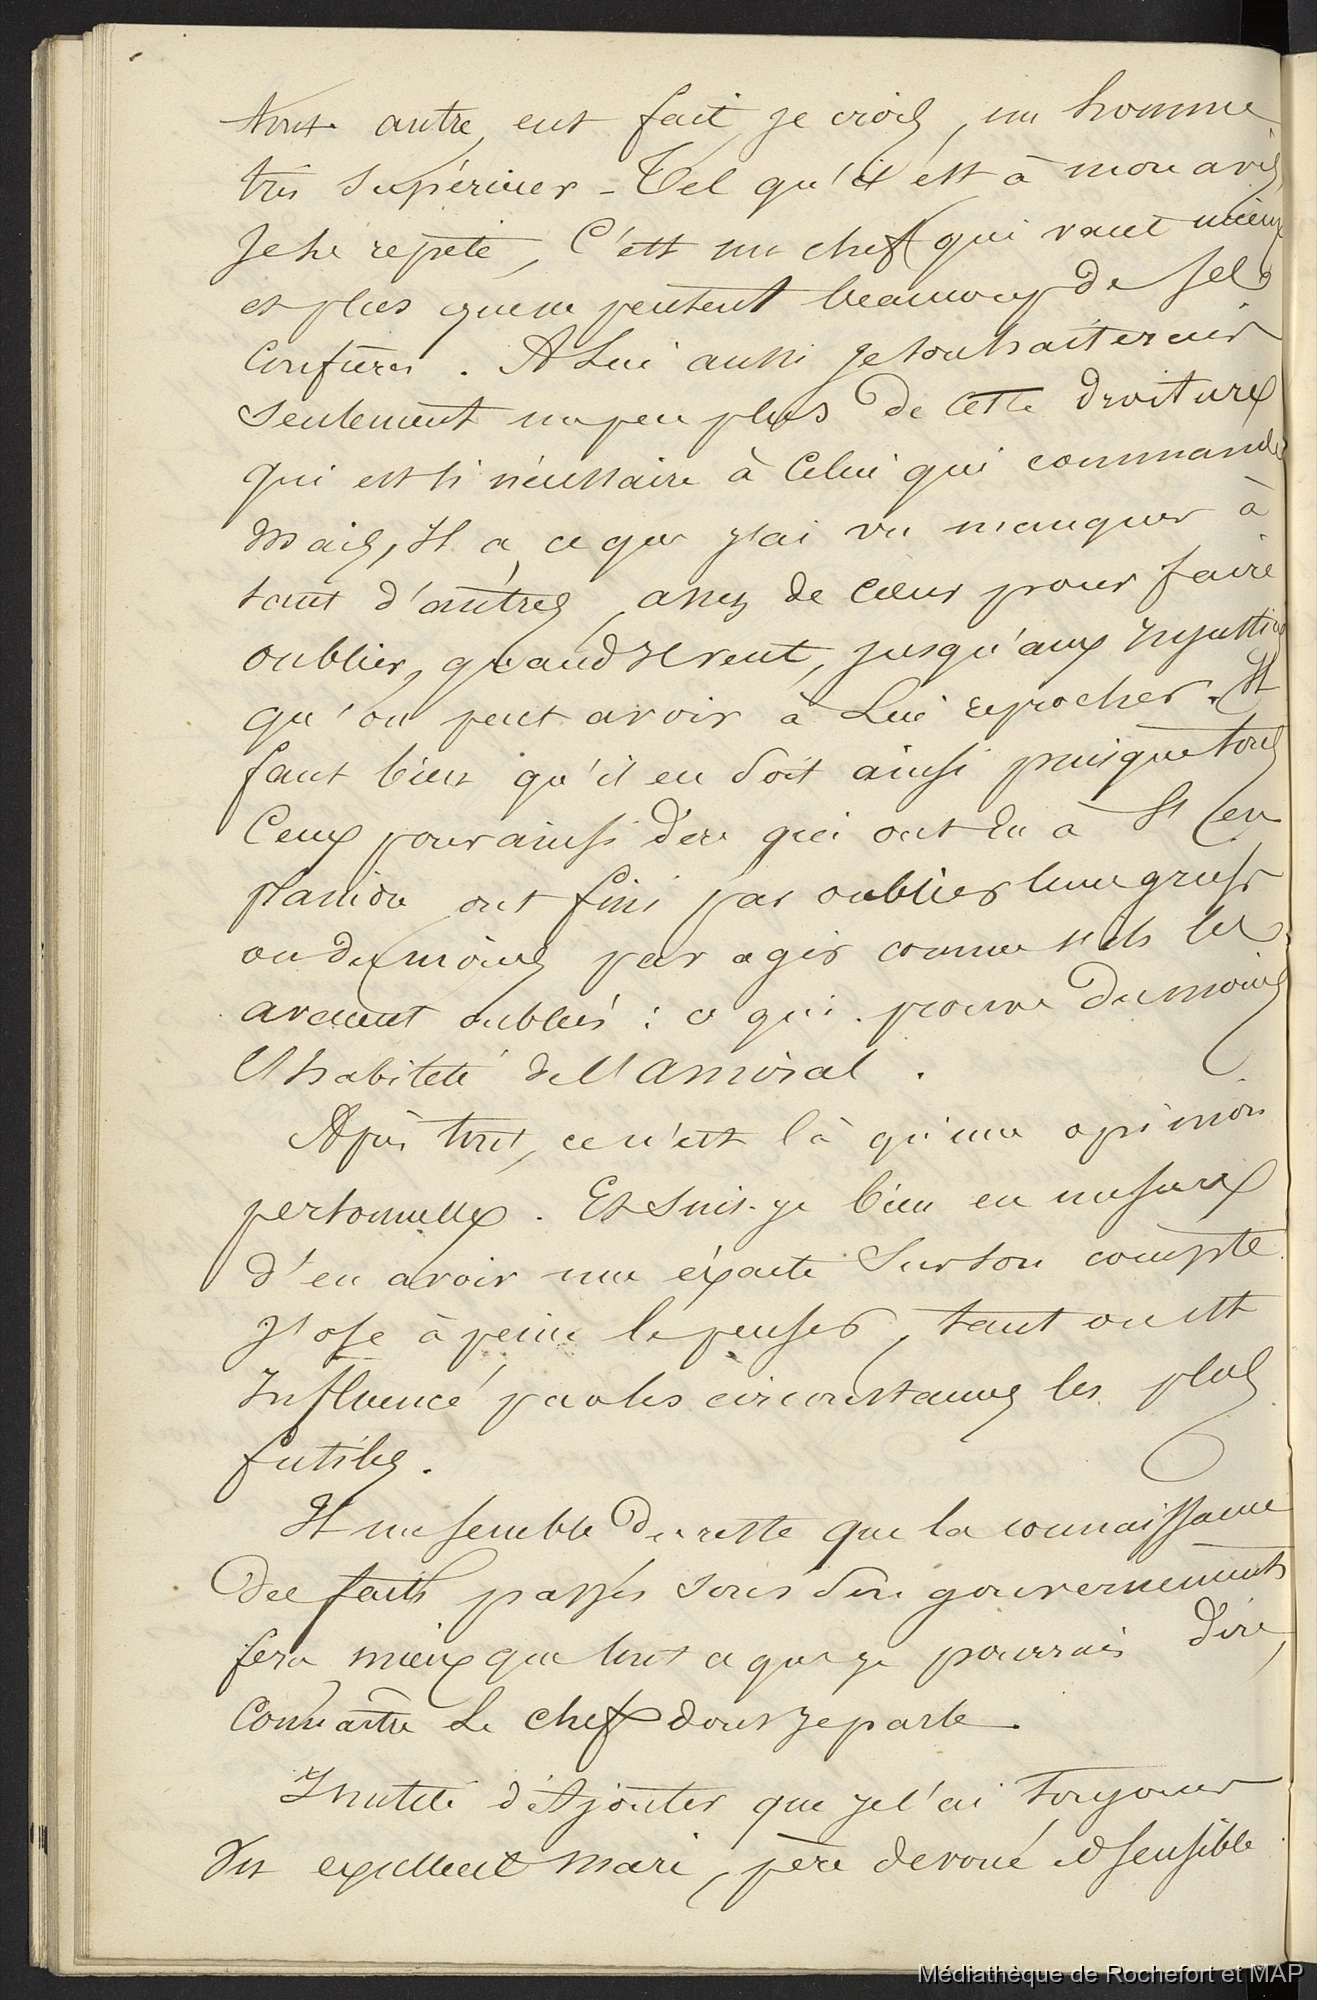 tout autre, eut fait, je crois, un homme
très supérieur - Tel qu'il est à mon avis,
Je le repète, C'est un chef qui vaut mieux
et plus que ne pensent beaucoup de ses
Confrères. A Lui aussi je souhaiterais
seulement un peu plus de cette droiture
qui est si nécessaire à Celui qui commande
Mais, Il a, ce que j'ai vu manquer à
tant d'autres, assez de cœur pour faire
oublier, quand Il veut, jusqu'aux Injustices
qu'on peut avoir à Lui reprocher. Il
faut bien qu'il en soit ainsi puisque tous
Ceux pour ainsi dire qui ont du à St (en
plaindre ont fini par oublier leurs griefs
ou du moins par agir comme s'ils les
avaient oubliés : ce qui prouve du moins
l'habileté de l'Amiral.
Après tout, ce n'est là qu'une opinion
personnelle. Et suis-je bien en mesure
d'en avoir une éxacte sur son compte
J'ose à peine le penser, tant on est
Influencé par les circonstances les plus
futiles.
Il me semble du reste que la connaissance
des faits passés sous son gouvernement
fera mieux que tout ce que je pourrais dire,
Connaître Le chef dont je parle.
Inutile d'Ajouter que je l'ai toujours
vu excellent mari, père devoué et sensible
Médiathèque de Rochefort et MAP